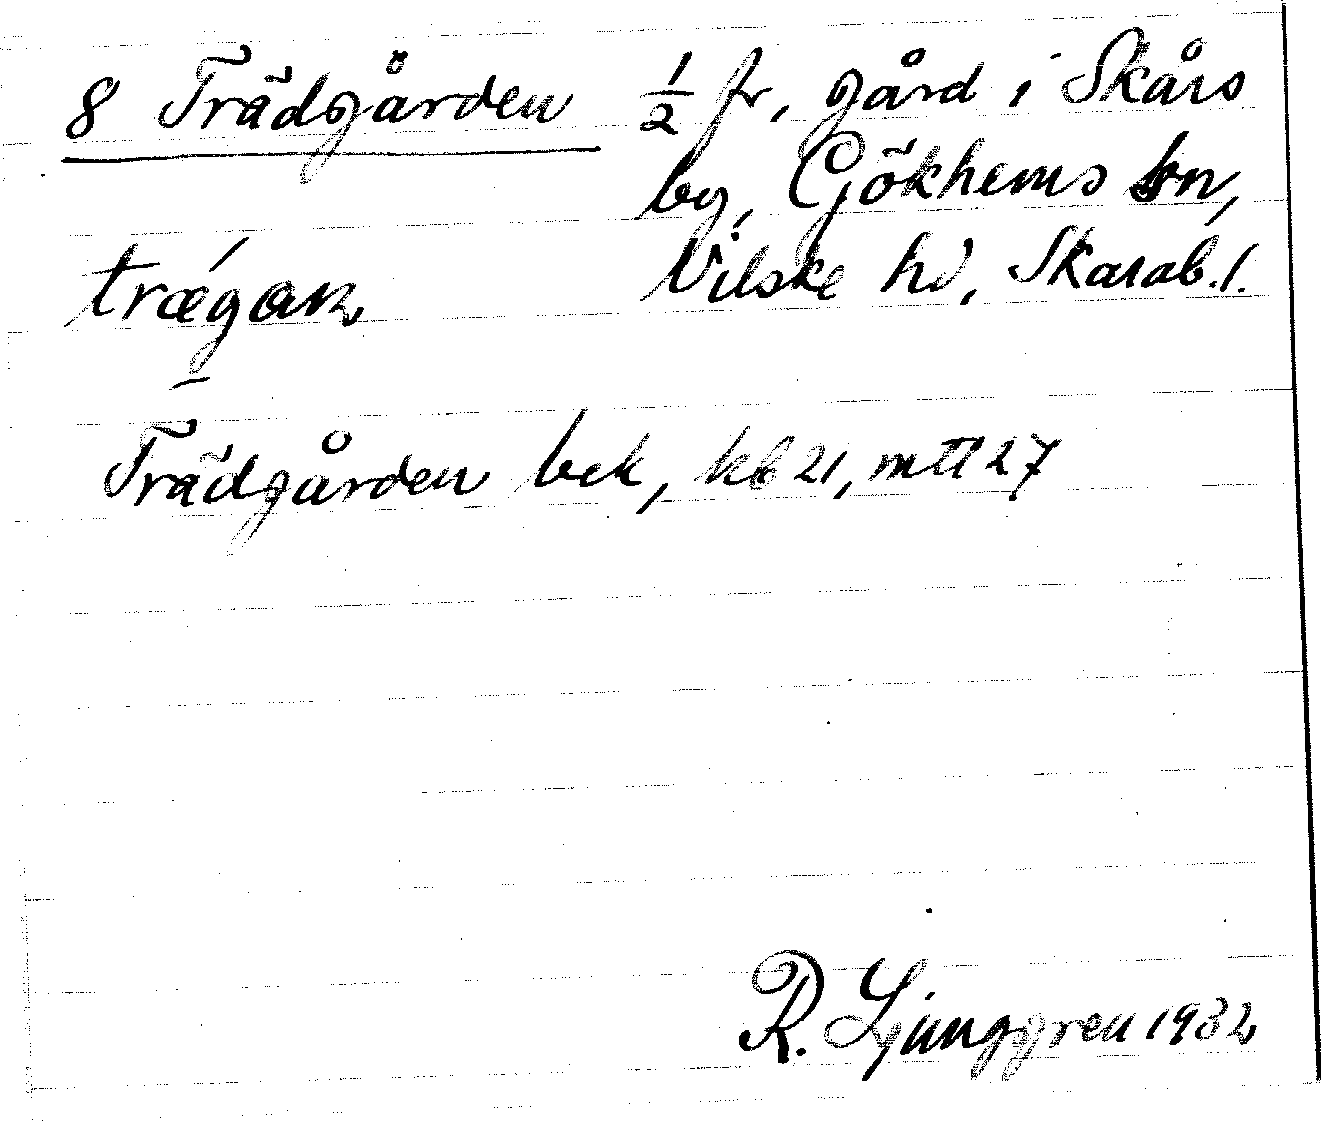 8 Trädgården ½ fr, gård i Skårs
by, Gökhems sn,
Vilske hd, Skarab.l.
trǽgan
Trädgården bek, kb 21, mtl 27
R. Ljunggren 1932